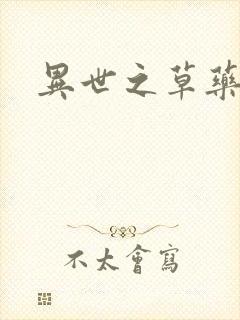 異世之草藥
不太會寫